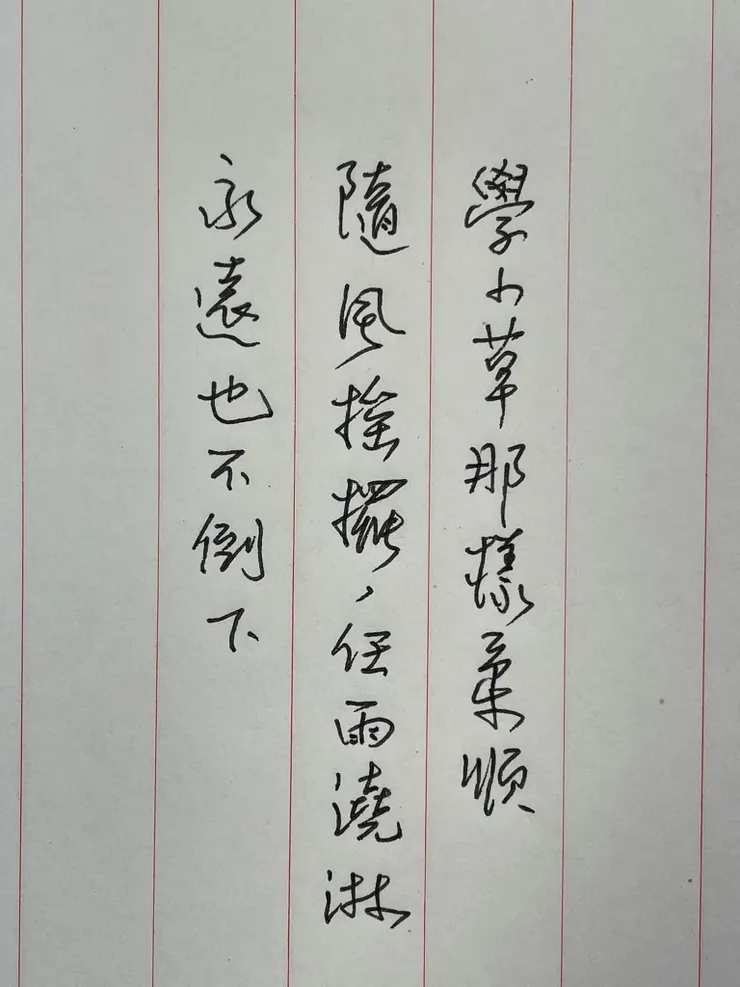 學小草那樣柔順
隨風搖擺，任雨澆淋
永遠也不倒下